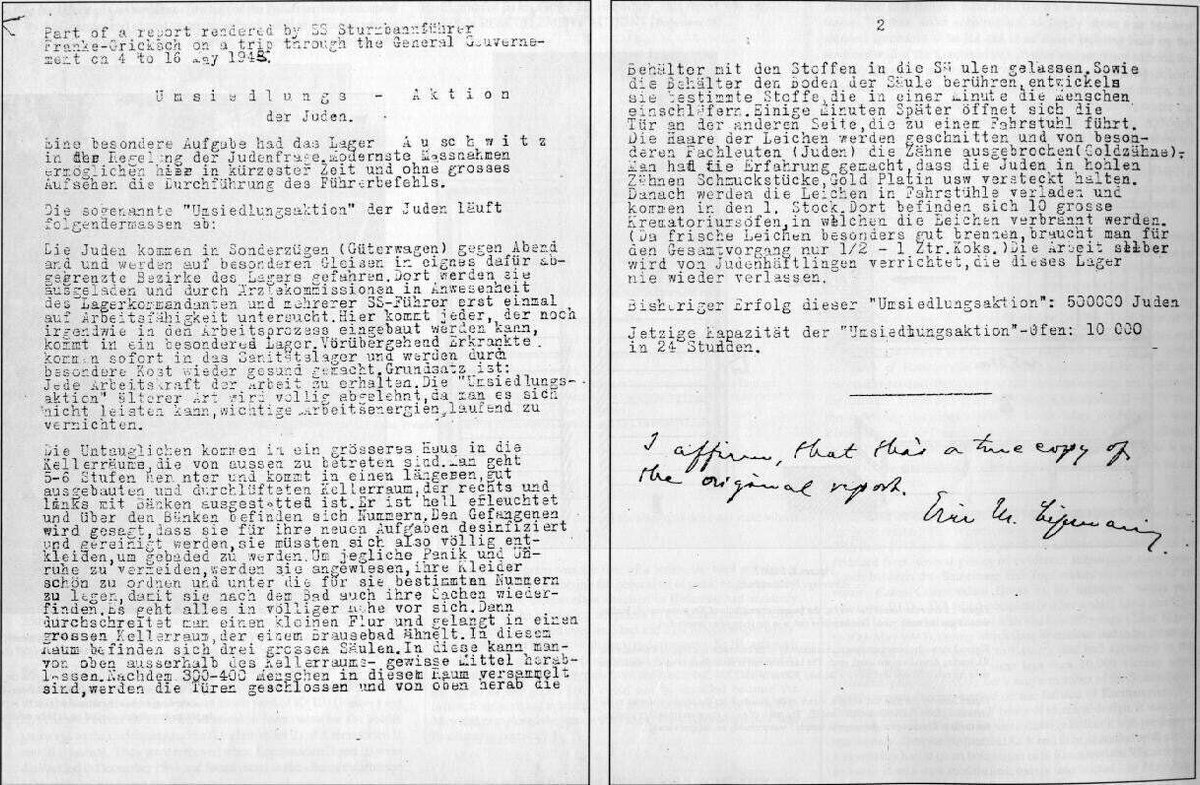 Part of a report rendered by SS Sturmbannführer
Franke-Gricksch on a trip through the General Gouverne-
ment on 4 to 16 May 1943.
U m s i e d l u n g s - A k t i o n
der Juden.
Eine besondere Aufgabe had das Lager A u s c h w i t z
in der Regelung der Judenfrage. Modernste Massnahmen
ermöglichen hier in kürzester Zeit und ohne grosses
Aufsehen die Durchführung des Führerbefehls.
Die sogenannte "Umsiedlungsaktion" der Juden läuft
folgendermassen ab:
Die Juden kommen in Sonderzügen (Güterwagen) gegen Abend
and und werden auf besonderen Gleisen in eignes dafür ab-
gegrenzte Bezirke des Lagers gefahren. Dort werden sie
ausgeladen und durch Ärztekommissionen in Anwesenheit
des Lagerkommandanten und mehrerer SS-Führer erst einmal
auf Arbeitsfähigkeit untersucht. Hier kommt jeder, der noch
irgendwie in den Arbeitsprozess eingebaut werden kann,
kommt in ein besonderes Lager. Vorübergehend Erkrankte
kommen sofort in das Sanitätslager und werden durch
besondere Kost wieder gesund gemacht. Grundsatz ist:
Jede Arbeitskraft der Arbeit zu erhalten. Die "Umsiedlungs-
aktion" älterer Art wird völlig abgelehnt, da man es sich
nicht leisten kann, wichtige Arbeitsenergien laufend zu
vernichten.
Die Untauglichen kommen in ein grösseres Haus in die
Kellerräume, die von aussen zu betreten sind. Man geht
5-6 Stufen herunter und kommt in einen längeren, gut
ausgebauten und durchlüfteten Kellerraum, der rechts und
links mit Bänken ausgestatted ist. Er ist hell erleuchtet
und über den Bänken befinden sich Nummern. Den Gefangenen
wird gesagt, dass sie für ihre neuen Aufgaben desinfiziert
und gereinigt werden, sie müssten sich also völlig ent-
kleiden, um gebaded zu werden. Um jegliche Panik und Un-
ruhe zu vermeiden, werden sie angewiesen, ihre Kleider
schön zu ordnen und unter die für sie bestimmten Nummern
zu legen, damit sie nach dem Bad auch ihre Sachen wieder-
finden. Es geht alles in völliger Ruhe vor sich. Dann
durchschreitet man einen kleinen Flur und gelangt in einen
grossen Kellerraum, der einem Brausebad ähnelt. In diesem
Raum befinden sich drei grossen Säulen. In diese kann man-
von oben ausserhalb des Kellerraums- gewisse Mittel herab-
lassen. Nachdem 300-400 Menschen in diesem Raum versammelt
sind, werden die Türen geschlossen und von oben herab die
2
Behälter mit den Stoffen in die Säulen gelassen. Sowie
die Behälter den Boden der Säule berühren, entwickels
sie bestimmte Stoffe, die in einer Minute die Menschen
einschläfern. Einige Minuten Später öffnet sich die
Tür an der anderen Seite, die zu einem Fahrstuhl führt.
Die Haare der Leichen werden geschnitten und von beson-
deren Fachleuten (Juden) die Zähne ausgebrochen (Goldzähne).
Man had die Erfahrung gemacht, dass die Juden in hohlen
Zähnen Schmuckstücke, Gold Platin usw versteckt halten.
Danach werden die Leichen in Fahrstühle verladen und
kommen in den 1. Stock. Dort befinden sich 10 grosse
Krematoriumsöfen, in welchen die Leichen verbrannt werden.
(Da frische Leichen besonders gut brennen, braucht man für
den Gesamtvorgang nur 1/2 - 1 Ztr. Koks.) Die Arbeit selber
wird von Judenhäftlingen verrichtet, die dieses Lager
nie wieder verlassen.
Bisheriger Erfolg dieser "Umsiedlungsaktion": 500000 Juden
Jetzige Kapazität der "Umsiedlungsaktion"-Öfen: 10 000
in 24 Stunden.
I affirm, that this a true copy of
the original report.
Eric M. Lipmann.